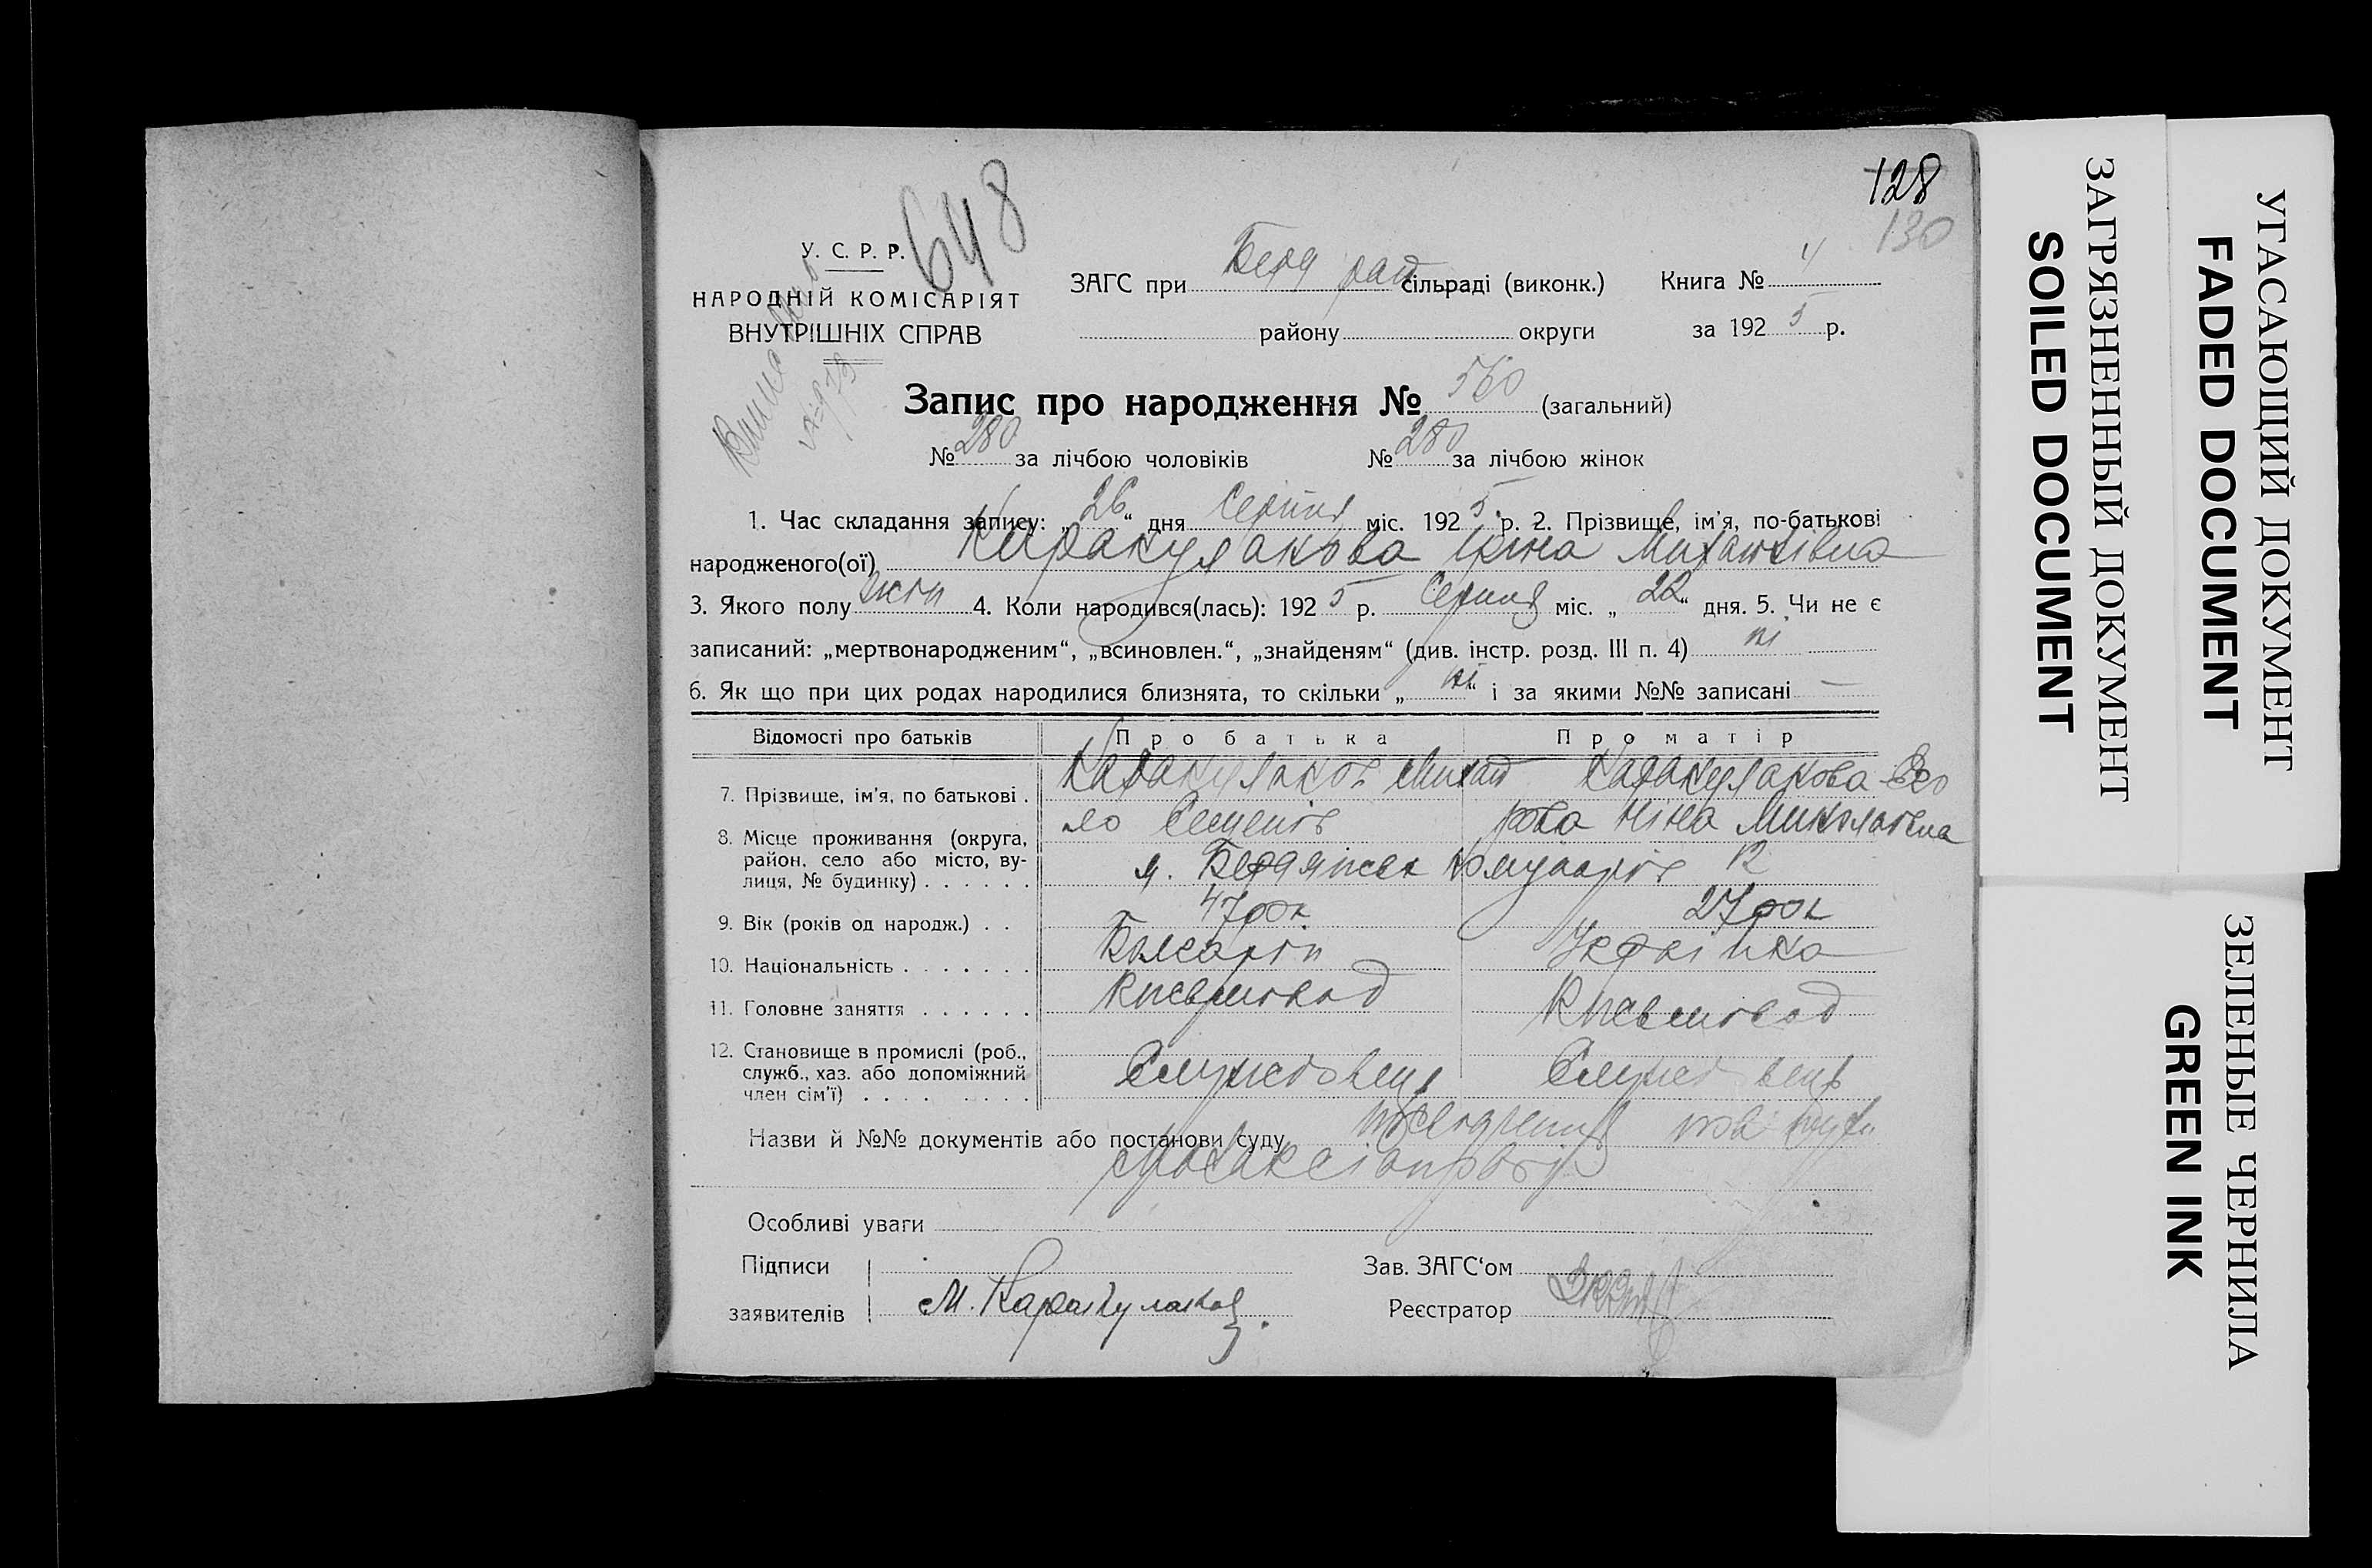 128
130
648
У. С. Р. Р.
НАРОДНІЙ КОМІСАРІЯТ
ВНУТРІШНІХ СПРАВ
ЗАГС при Берд рай сільраді (виконк.) Книга № 4
району округи за 192 5 р.
Запис про народження № 560 (загальний)
№ 280 за лічбою чоловіків № 280 за лічбою жінок
1. Час складання запису: „ 26 “ дня Серпня міс. 192 5 р. 2. Прізвище, ім'я, по-батькові
народженого(ої) Каракулакова Ірина Михайлівна
3. Якого полу жін 4. Коли народився(лась): 192 5 р. Серпня міс. „ 22 “ дня. 5. Чи не є
записаний: „мертвонародженим“, „всиновлен.“, „знайденям“ (див. інстр. розд. III п. 4) ні
6. Як що при цих родах народилися близнята, то скільки „ ні “ і за якими №№ записані —
Відомості про батьків Про батька Про матір
7. Прізвище, ім'я, по батькові . Каракулаков Михай Каракулакова
ло Семенів Ніна Миколаївна
8. Місце проживання (округа,
район, село або місто, ву-
лиця, № будинку) . . . . . . м. Бердянськ Комунарів 12
9. Вік (років од народж.) . . 47 рок 27 рок
10. Національність . . . . . . . Болгарін Українка
11. Головне заняття . . . . . .
12. Становище в промислі (роб.,
служб., хаз. або допоміжний
член сім'ї) . . . . . . . . Службовець Службовець
Назви й №№ документів або постанови суду
Особливі уваги
Підписи Зав. ЗАГС‘ом
заявителів М. Каракулаков. Реєстратор
ЗАГРЯЗНЕННЫЙ ДОКУМЕНТ
SOILED DOCUMENT
УГАСАЮЩИЙ ДОКУМЕНТ
FADED DOCUMENT
ЗЕЛЕНЫЕ ЧЕРНИЛА
GREEN INK